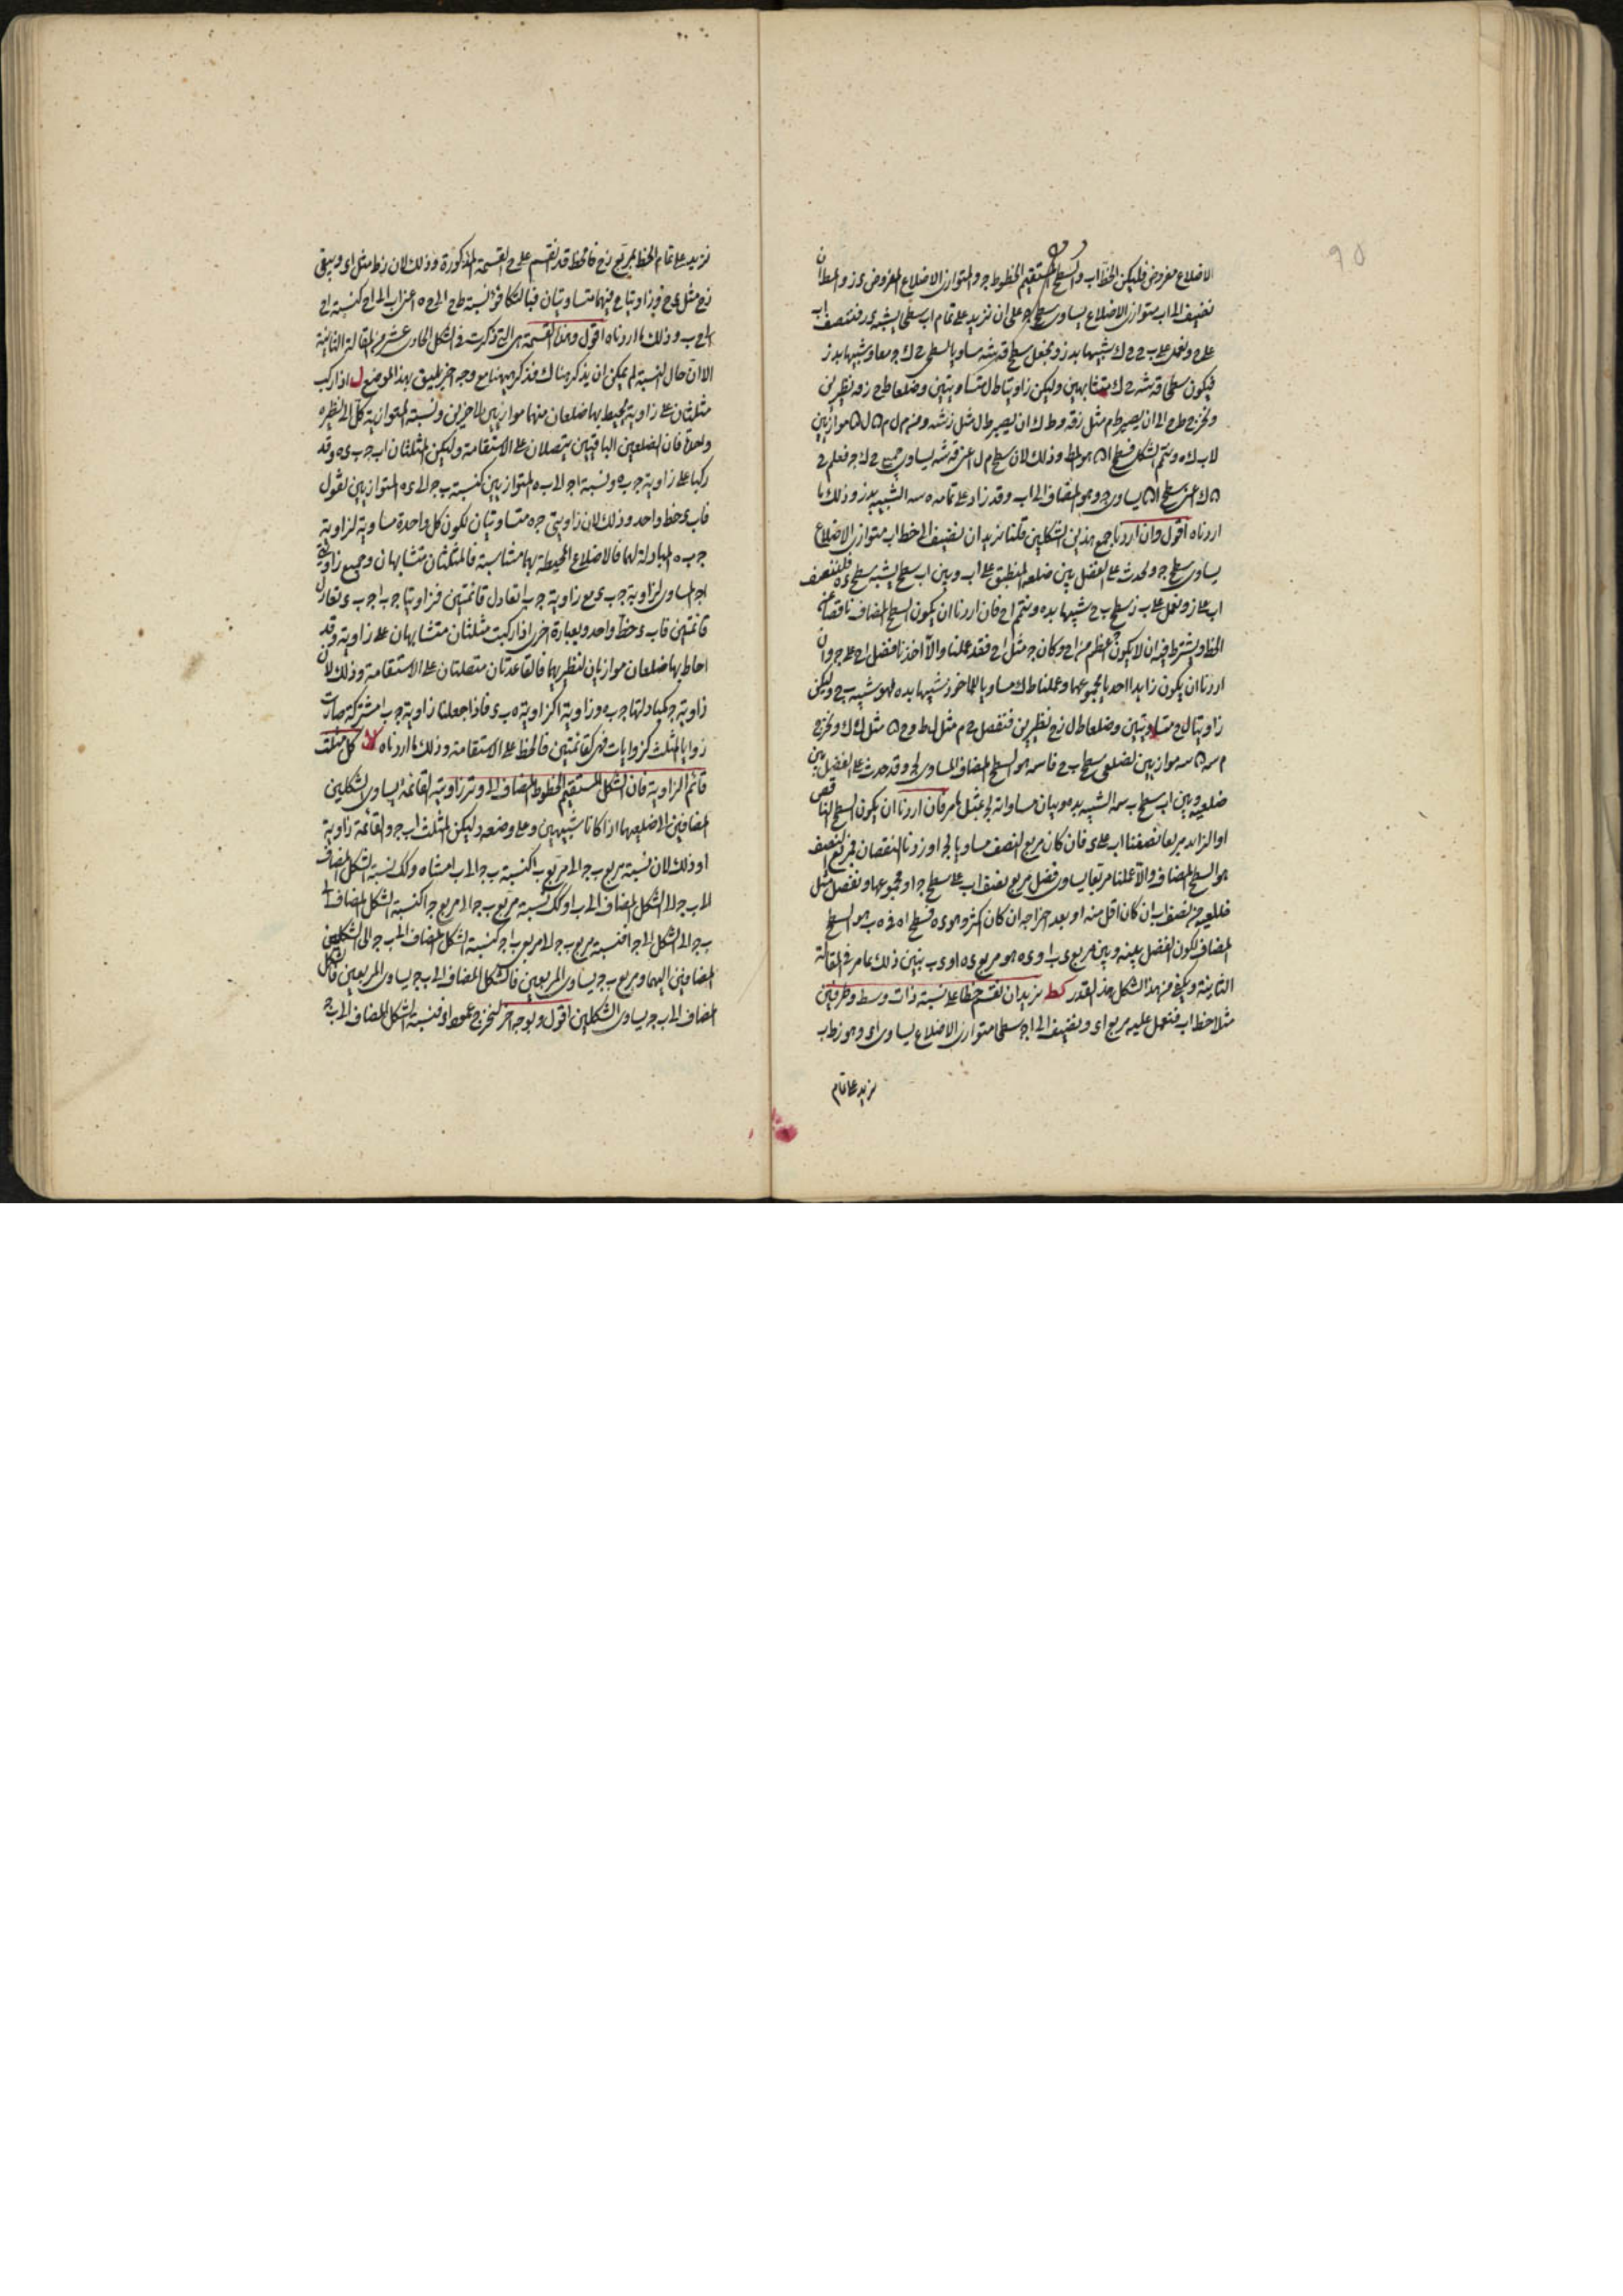 الاضلاع مفروض فليكن الخط اب والسطح المستقيم الخطوط جـ والمتوازى الاضلاع المفروض ى ز والمط ان
نضيف الى اب متوازى الاضلاع يساوى سطح جـ على ان نزيد على تمام اب سطحا يشبه ى ز فننصف اب
على ح ونعمل على ب ح ح ك شبيها بد ز ونجعل سطح قه شه مساويا لسطحى ح ك جـ معا وشبيها بد ز
فيكون سطحا قه شه ح ك متشابهين وليكن زاويتا ط ل متساويتين وضلعا ط ح ز قه نظيرين
ونخرج ط ح الى ان يصير ط م مثل ز قه و ط ك الى ان يصير ط ل مثل ز شه ومن م ل م ن ل ن موازيين
لاب ك ه ونتم الشكل فسطح ا ن هو المط وذلك لان سطح م ل اعنى قه شه يساوى جميع ح ك جـ فعلم ح
ن ك اعنى سطح ا ن يساوى جـ وهو المضاف الى اب وقد زاد على تمامه ه سه الشبيه بد ز وذلك ما
اردناه اقول وان اردنا جمع هذين الشكلين قلنا نريد ان نضيف الى خط اب متوازى الاضلاع
يساوى سطح جـ ويحدث على الفضل بين ضلعه المنطبق على اب وبين اب سطح يشبه سطح ى ه فلننصف
اب على ز ونعمل على ب ز سطح ب ح شبيها بده ونتمم اح فان اردنا ان يكون السطح المضاف ناقصا عن
الخط ويشترط فيه ان لا يكون جـ اعظم من اح وكان جـ مثل اح فقد عملنا والا اخذنا فضل اح على جـ وان
اردنا ان يكون زايدا اخذنا مجموعهما وعملنا ط ك مساويا للماخوذ شبيها بده فهو شبيه ب ح وليكن
زاويتا ل ح متساويتين وضلعا ط ل ز ح نظيرين فنفصل ح م مثل ل ط و ح ن مثل ل ك ونخرج
م سه ن سه موازيين لضلعى سطح ب ح فا سه هو السطح المضاف المساوى لجـ وقد حدث على الفضل بين
ضلعيه وبين اب سطح ب سه الشبيه بد ه وبيان مساواته لجـ بمثل ما مر فان اردنا ان يكون السطح الناقص
او الزايد مربعا نصفنا اب على ى فان كان مربع النصف مساويا لجـ واردنا النقصان فمربع النصف
هو السطح المضاف والا عملنا مربعا يساوى فضل مربع نصف اب على سطح جـ او مجموعهما ونفصل مثل
ضلعيه من نصف اب ان كان اقل منه او بعد اخراجه ان كان اكثر وهو ى ه فسطح ا ه فى ه ب هو السطح
المضاف لكون الفضل بينه وبين مربع ى ب او ى ه هو مربع ى ه او ى ب يتبين ذلك بما مر فى المقالة
الثانية ويكفى من هذا الشكل هذا القدر كط نريد ان نقسم خطا على نسبة ذات وسط وطرفين
مثلا خط اب فنعمل عليه مربع اى ونضيف الى اجـ سطحا متوازى الاضلاع يساوى اى وهو ز ط ب
نزيد على تمام
نزيد على تمام الخط بمربع ز ح فالخط قد انقسم على ح القسمة المذكورة وذلك لان ز ط مثل اى ويبقى
ز ح مثل ى ح وزاويتا ح فيهما متساويتان فبالتكافؤ نسبة ط ح الى ح ه اعنى اب الى اح كنسبة اح
الى ح ب وذلك ما اردناه اقول وهذه القسمة هى التى ذكرت فى الشكل الحادى عشر من المقالة الثانية
الا ان حال النسبة لم يمكن ان يذكر هناك فذكر ههنا مع وجه اخر يليق بهذا الموضع ل اذا ركب
مثلثان على زاوية يحيط بها ضلعان منهما موازيين للاخرين ونسبة المتوازية كل الى نظيره
واحدة فان الضلعين الباقيين يتصلان على الاستقامة وليكن المثلثان اب جـ جـ ى ه وقد
ركبا على زاوية جـ ب ه ونسبة اجـ الى ب ه المتوازيين كنسبة ب جـ الى ى ه المتوازيين نقول
فاب ى خط واحد وذلك لان زاويتى جـ ه متساويتان لكون كل واحدة مساوية لزاوية
جـ ب ه المبادلة لهما فالاضلاع المحيطة بهما متناسبة فالمثلثان متشابهان وجميع زاوية
اجـ المساوى لزاوية جـ ب ى مع زاوية جـ ب ا تعادل قائمتين فزاويتا جـ ب ا جـ ب ى تعادل
قائمتين فاب ى خط واحد وبعبارة اخرى اذا ركبت مثلثان متشابهان على زاوية وقد
احاط بها ضلعان موازيان لنظيريهما فالقاعدتان متصلتان على الاستقامة وذلك لان
زاوية جـ كمبادلتها جـ ب ه وزاوية ا كزاوية ه ب ى فاذا جعلنا زاوية جـ ب ا مشتركة صارت
زوايا المثلث كزوايا ب فهى كقائمتين فالخط على الاستقامة وذلك ما اردناه لا كل مثلث
قائم الزاوية فان الشكل المستقيم الخطوط المضاف الى وتر زاويته القائمة يساوى الشكلين
المضافين الى ضلعيها اذا كانا شبيهين وعلى وضعه وليكن المثلث اب جـ والقائمة زاوية
ا وذلك لان نسبة مربع ب جـ الى مربع ب ا كنسبة ب جـ الى ب ا مثناه وكك نسبة الشكل المضاف
الى ب جـ الى الشكل المضاف الى ب ا وكك نسبة مربع ب جـ الى مربع جـ ا كنسبة الشكل المضاف الى
ب جـ الى الشكل الى جـ ا فنسبة مربع ب جـ الى مربعى ب ا اجـ كنسبة الشكل المضاف الى ب جـ الى الشكلين
المضافين اليهما ومربع ب جـ يساوى المربعين فالشكل المضاف الى ب جـ يساوى المربعين فالشكل
المضاف الى ب جـ يساوى الشكلين اقول وبوجه اخر لنخرج عمود اى فنسبة الشكل المضاف الى ب جـ